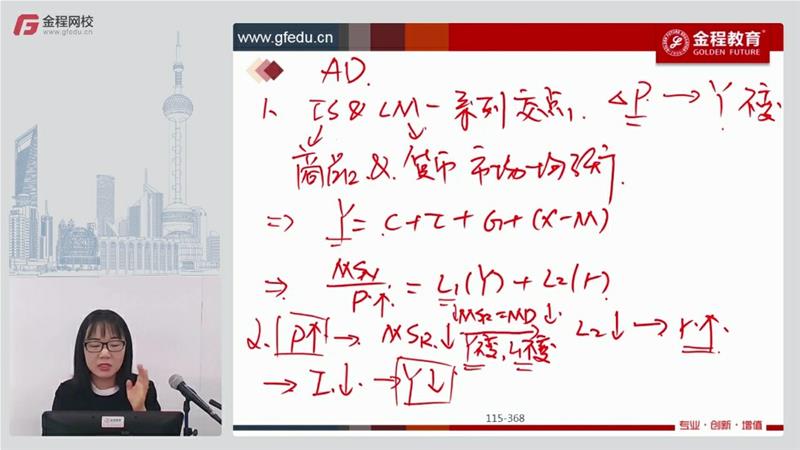 金程网校
www.gfedu.cn
www.gfedu.cn
金程教育
GOLDEN FUTURE
AD.
1. IS & LM 一系列交点, ΔP → Y 变
商品 & 货币 市场均衡
⇒ Y = C + I + G + (X-M)
⇒ MSN/P↑ = L1(Y) + L2(r)
↓MSR=MD↓
2. P↑ → MSR↓ Y不变, L1不变 L2↓ → r↑
→ I↓ → Y↓
115-368
专业·创新·增值